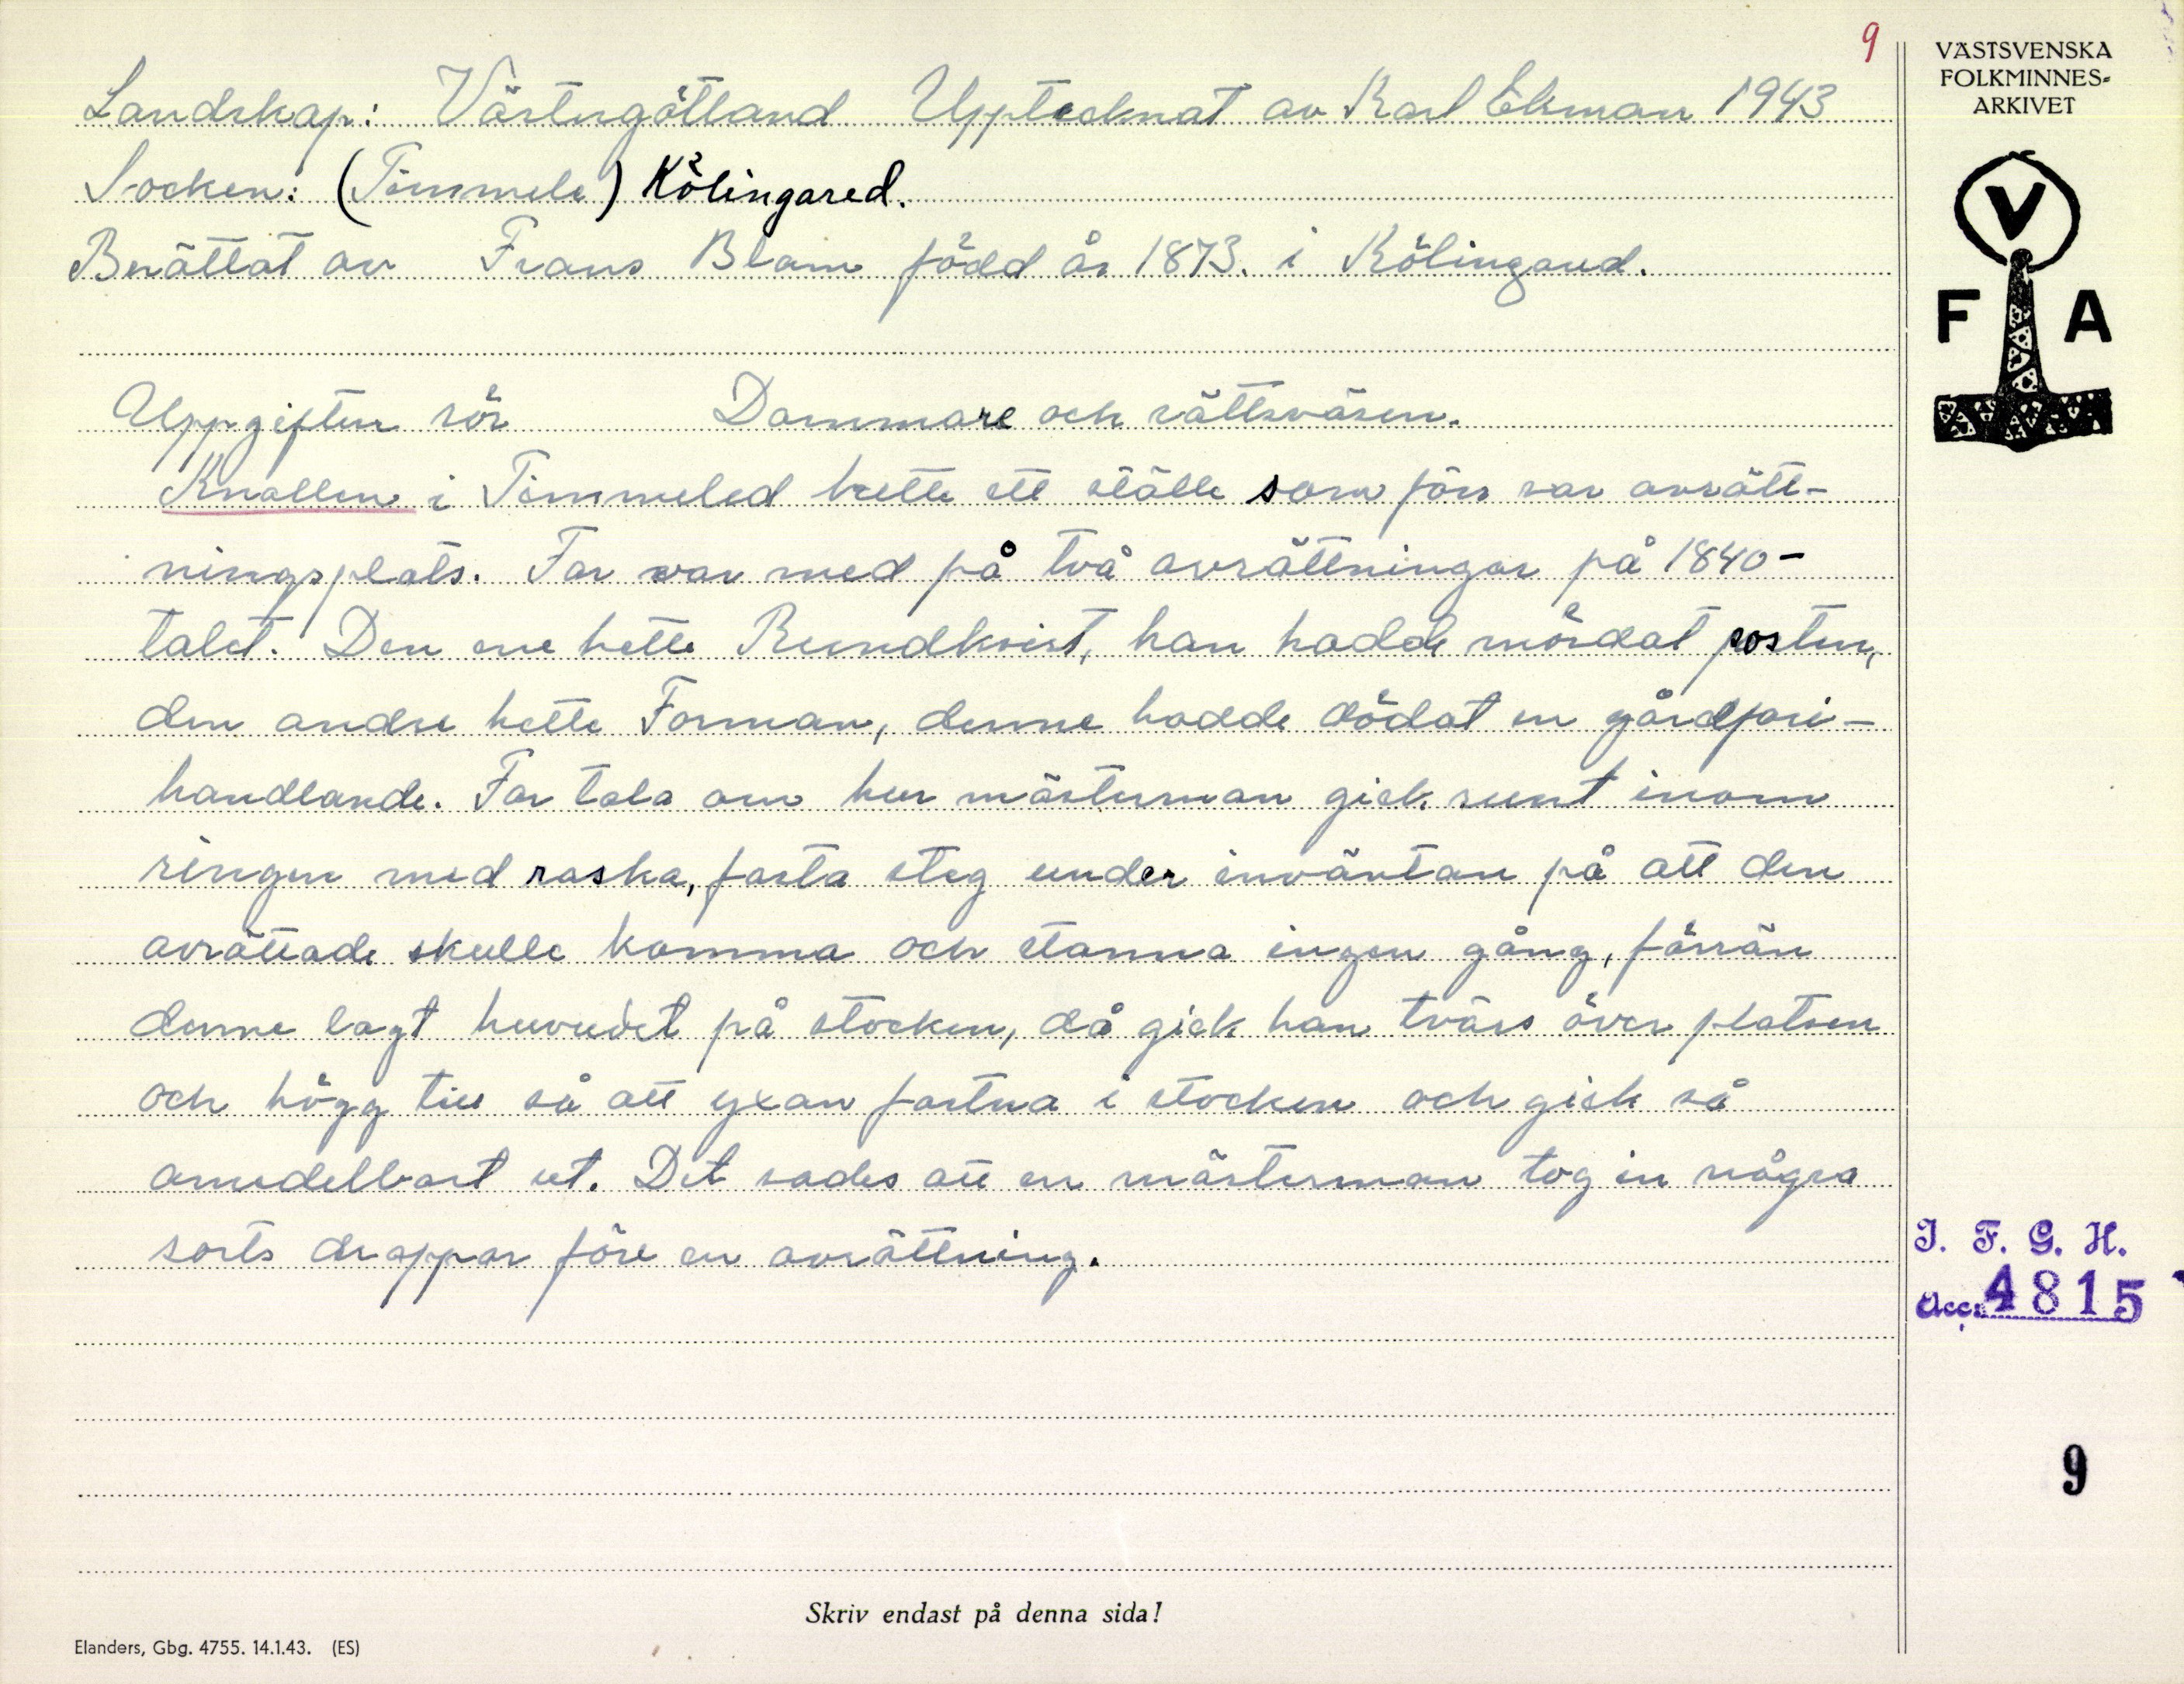 9
Landskap: Västergötland Upptecknat av Karl Ekman 1943
Socken: (Timmele) Kölingared.
Berättat av Frans Blom född år 1873. i Kölingared.
Uppgiften rör Dommare och rättsväsen.
Knallen i Timmeled hette ett ställe som förr var avrätt-
ningsplats. Far var med på två avrättningar på 1840-
talet. Den ene hette Rundkvist, han hadde mördat posten,
den andre hette Forman, denne hadde dödat en gårdfari-
handlande. Far tala om hur mästerman gick runt inom
ringen med raska, fasta steg under inväntan på att den
avrättade skulle komma och stanna ingen gång, förrän
denne lagt huvudet på stocken, då gick han tvärs över platsen
och högg till så att yxan fastna i stocken och gick så
omedelbart ut. Det sades att en mästerman tog in några
sorts droppar före en avrättning.
Skriv endast på denna sida!
Elanders, Gbg. 4755. 14.1.43. (ES)
VÄSTSVENSKA
FOLKMINNES-
ARKIVET
V
F A
I. F. G. H.
Acc. 4815
9